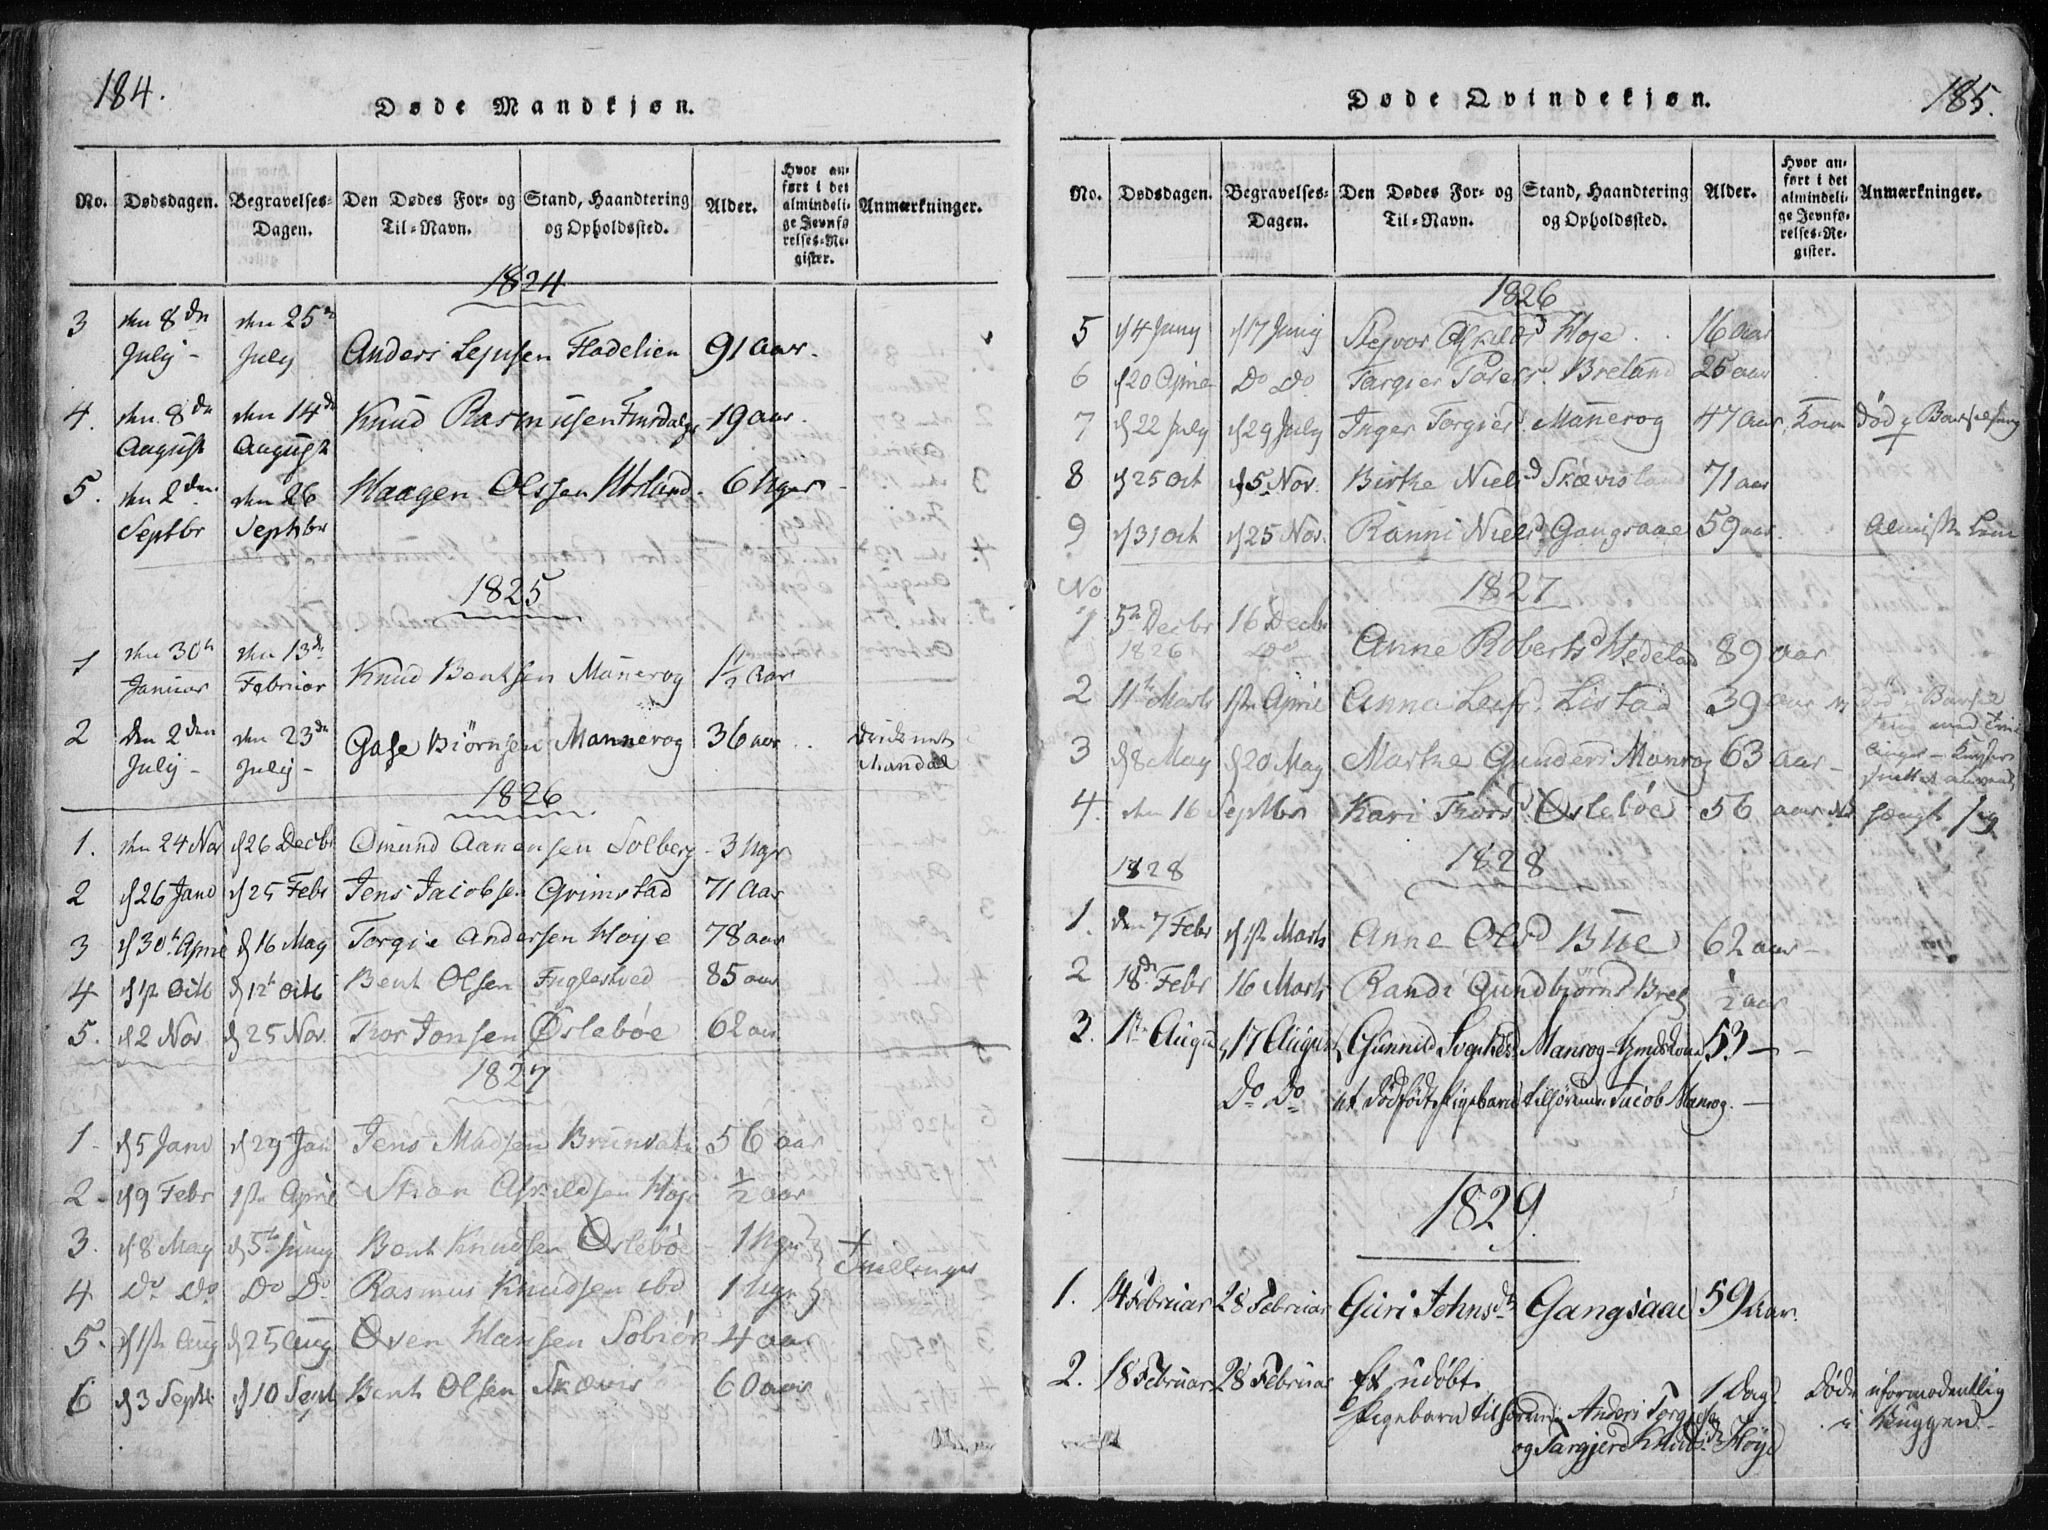 184.
Døde Mandkjøn.
No. Dødsdagen. Begravelses-Dagen. Den Dødes For- og Til-Navn. Stand, Haandtering og Opholdssted. Alder. Hvor anført i det almindelige Jevnførelses-Register. Anmærkninger.
1824
3 den 8de July - den 25 July Anders 91 aar.
4. den 8de August den 14de August Knud Rasmusen 19 aar.
5. den 2den Septbr den 26 Septbr Haagen Olssen 6 Uger -
1825
1 den 30te Januar den 13de Februar Knud Bentsen Mannerog 1 1/2 Aar
2 Den 2den July - den 23de July - Biørnsen Mannerog 36 aar
Mandal
1826
1. den 24 Nov d 26 Decbr Omund Aanensen Solberg - 3 Uger
2 d 26 Janu d 25 Febr Jens Jacobsen Grimstad 71 Aar
3 d 30te April d 16 May Torgie Andersen Høye 78 aar
4 d 1ste Octb d 12te Octb Bent Olsen Fuglestved - 85 aar
5. d 2 Nov. d 25 Nov. Thor Jonsen Øslebøe 62 aar
1827
1. d 5 Janu d 29 Jan Jens Madsen Brunvatn 56 aar
2. d 9 Febr 1ste April Stian Høje 1/2 aar
3. d 8 May d 5te Juny Bent Knudsen Øslebøe - 1 Uge
4 Do Do Do Do Rasmus Knudsen ibd 1 Uge
Tvillinger
5. d 1ste Aug d 25 Aug Øven Hansen 4 aar
6 d 3 Septbr d 10 Sept Bent Olsen Skævis 60 aar
185.
Døde Qvindekjøn.
No. Dødsdagen. Begravelses-Dagen. Den Dødes For- og Til-Navn. Stand, Haandtering og Opholdssted. Alder. Hvor anført i det almindelige Jevnførelses-Register. Anmærkninger.
1826
5 d 4 Juny d 17 Juny Høje 16 aar
6 d 20 April Do Do Targier Breland 25 aar
7 d 22 July d 29 July Inger Torgiersd. Mannerog 47 aar Død i Barselseng
8 d 25 Oct d 5 Nov. Birthe Nielsd Skævisland 71 aar
9 d 31 Oct d 25 Nov. Ranni Nielsd Gangsaae 59 aar. Lem
No 1827
1 5te Decbr 1826 16 Decbr Do Anne Robertsd Hedeland 89 aar
2 11te Marts 1ste April Anna Leifsd. Listad 39 aar Død i Barsel
3 d 8 May d 20 May Marthe Gundersd Manrog 63 aar -
4. den 16 Septbr Kari Thorsd Øslebøe 56 aar hængt sig
1828 1828
1. den 7 Febr d 1ste Marts Anne Olsd Bue 62 aar -
2 18de Febr 16 Marts Randi Gundbjørnsd Brel 1/2 aar
3. 1ste August 17 August Gunnild Manrog - 53 -
Do Do et dødfødt Pigebarn tilhørende Jacob Manrog. -
1829.
1. 14 Februar 28 Februar Guri Johnsdt Gangsaae 59 Aar.
2. 18 Februar 28 Februar Et udøbt 1 Dag. Døde uformodentlig
Pigebarn tilhørende Anders Torgjesen i Vuggen -
og Targjerd Knudsdt Høye